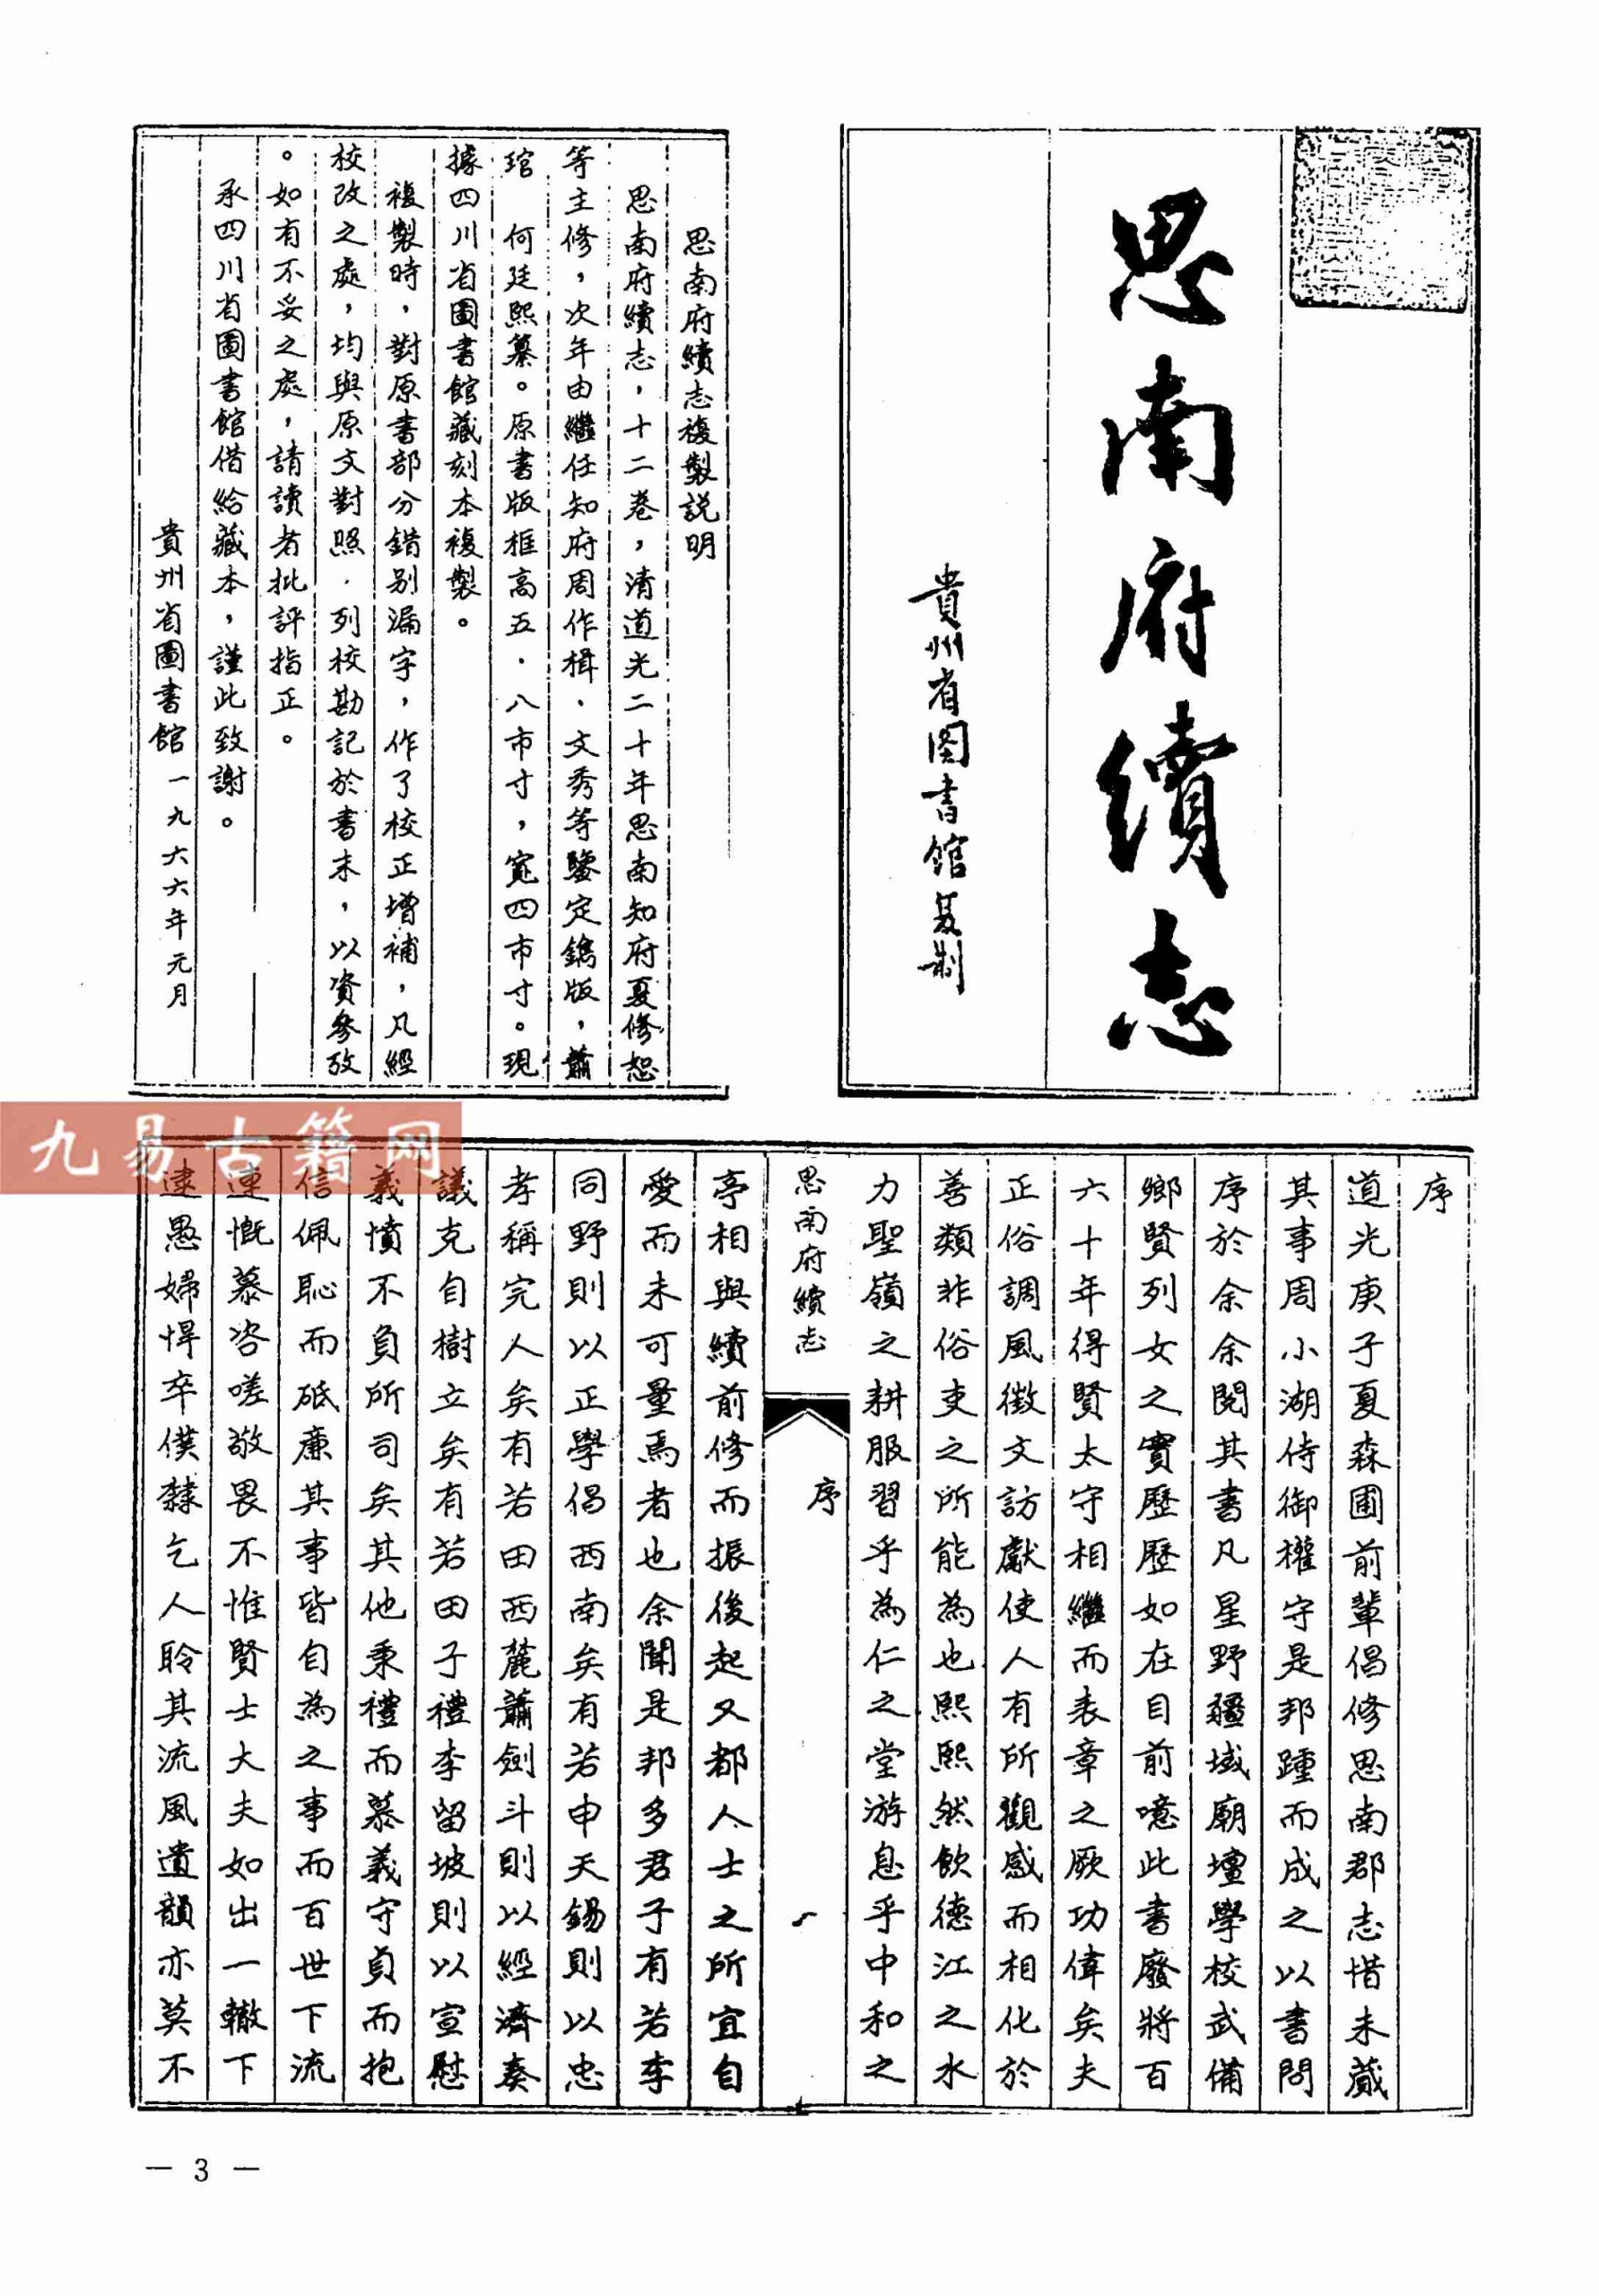 思南府續志
貴州省图書馆复制
思南府續志複製說明
思南府續志，十二卷，清道光二十年思南知府夏修恕
等主修，次年由繼任知府周作楫．文秀等鑒定鐫版，蕭
琯　何廷熙纂。原書版框高五．八市寸，寬四市寸。現
據四川省圖書館藏刻本複製。
複製時，對原書部分錯别漏字，作了校正增補，凡經
校改之處，均與原文對照．列校勘記於書末，以資參攷
。如有不妥之處，請讀者批評指正。
承四川省圖書館借給藏本，謹此致謝。
貴州省圖書館　一九六六年元月
九易古籍网
序
道光庚子夏森圃前輩倡修思南郡志惜未蕆
其事周小湖侍御權守是邦踵而成之以書問
序於余余閱其書凡星野疆域廟壇學校武備
鄉賢列女之實歷歷如在目前噫此書廢將百
六十年得賢太守相繼而表章之厥功偉矣夫
正俗調風徵文訪獻使人有所觀感而相化於
善類非俗吏之所能為也熙熙然飲德江之水
力聖嶺之耕服習乎為仁之堂游息乎中和之
思南府續志
序
一
亭相與續前修而振後起又都人士之所宜自
愛而未可量焉者也余聞是邦多君子有若李
同野則以正學倡西南矣有若申天錫則以忠
孝稱完人矣有若田西麓蕭劍斗則以經濟奏
議克自樹立矣有若田子禮李留坡則以宣慰
義憤不負所司矣其他秉禮而慕義守貞而抱
信佩恥而砥廉其事皆自為之事而百世下流
連慨慕咨嗟敬畏不惟賢士大夫如出一轍下
逮愚婦悍卒僕隸乞人聆其流風遺韻亦莫不
— 3 —